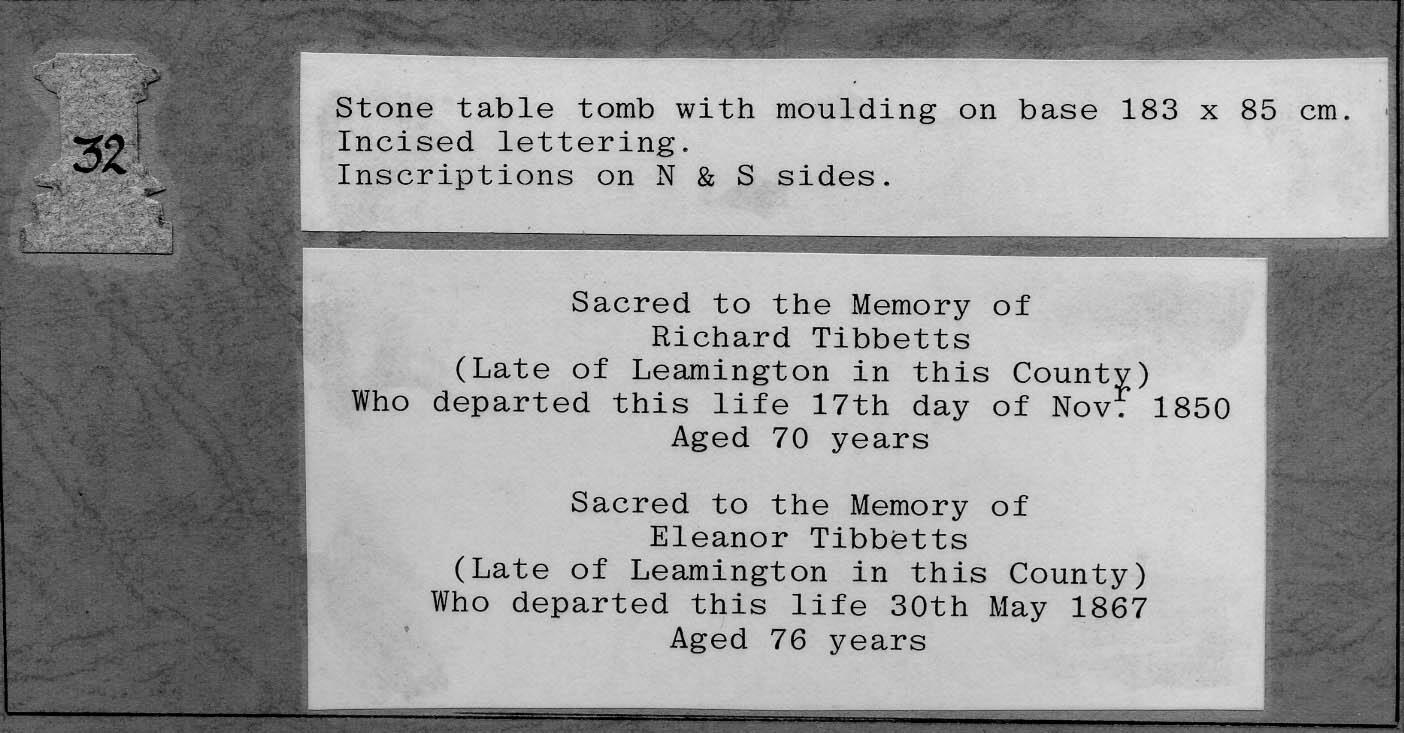 32
Stone table tomb with moulding on base 183 x 85 cm.
Incised lettering.
Inscriptions on N & S sides.
Sacred to the Memory of
Richard Tibbetts
(Late of Leamington in this County)
Who departed this life 17th day of Novʳ. 1850
Aged 70 years
Sacred to the Memory of
Eleanor Tibbetts
(Late of Leamington in this County)
Who departed this life 30th May 1867
Aged 76 years